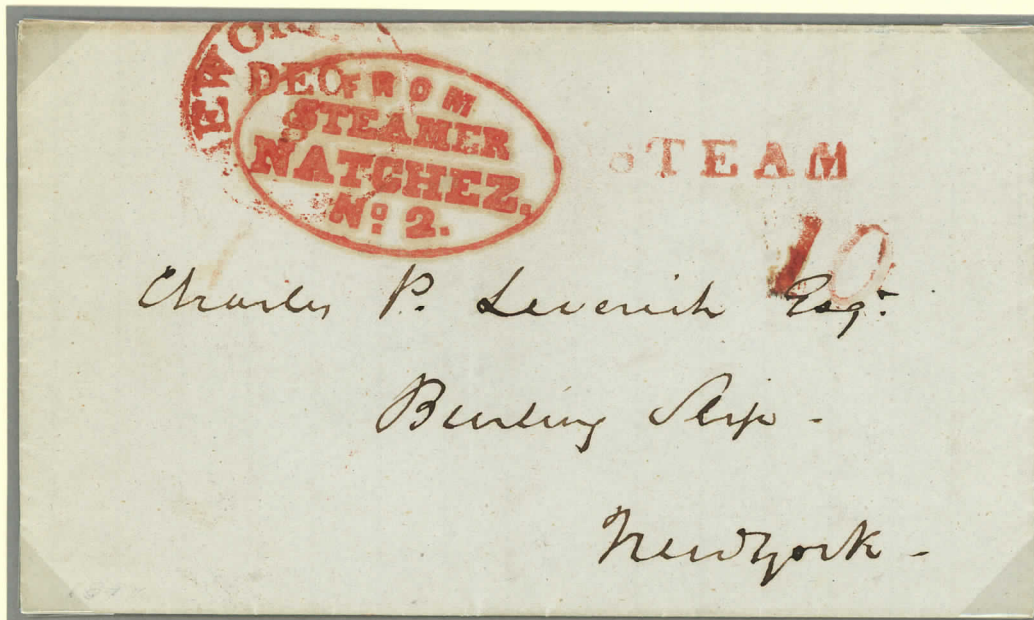 EW ORL
DEC
FROM
STEAMER
NATCHEZ.
No: 2.
STEAM
10
Charles P. Leverich Esqr.
Burling Slip -
New York -